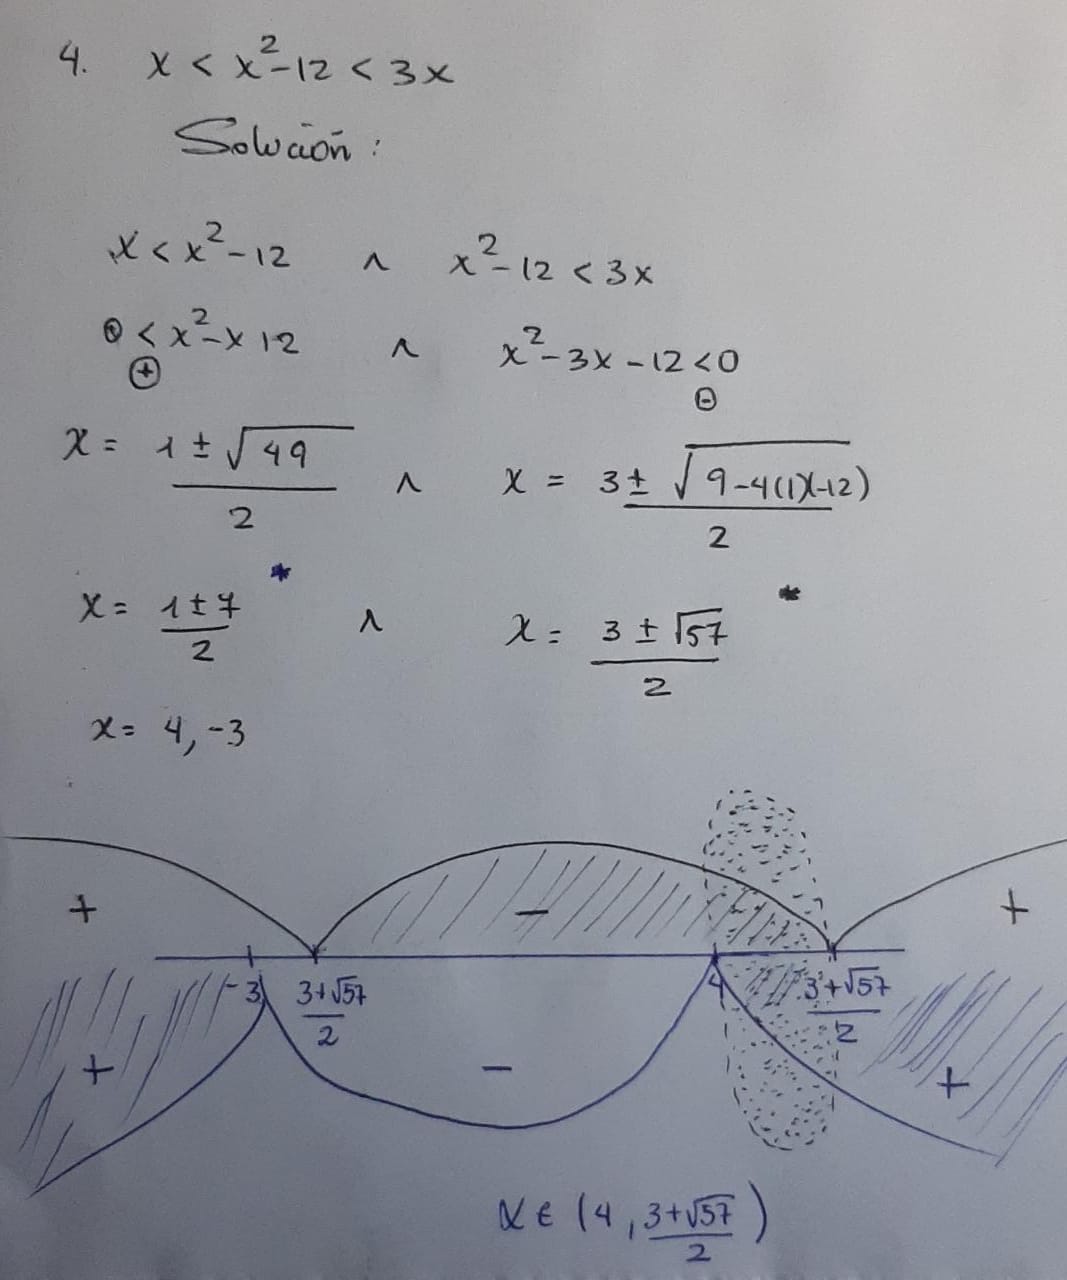 4. x < x²-12 < 3x
Solución :
x < x²-12 ∧ x²-12 < 3x
0 < x²-x 12 ∧ x²-3x-12<0
⊕ ⊖
x = 1 ± √49 / 2 ∧ x = 3 ± √9-4(1)(-12) / 2
* *
x = 1 ± 7 / 2 ∧ x = 3 ± √57 / 2
x = 4, -3
+ - +
-3 3+√57 / 2 4 3+√57 / 2
+ - +
x ∈ (4, 3+√57 / 2)